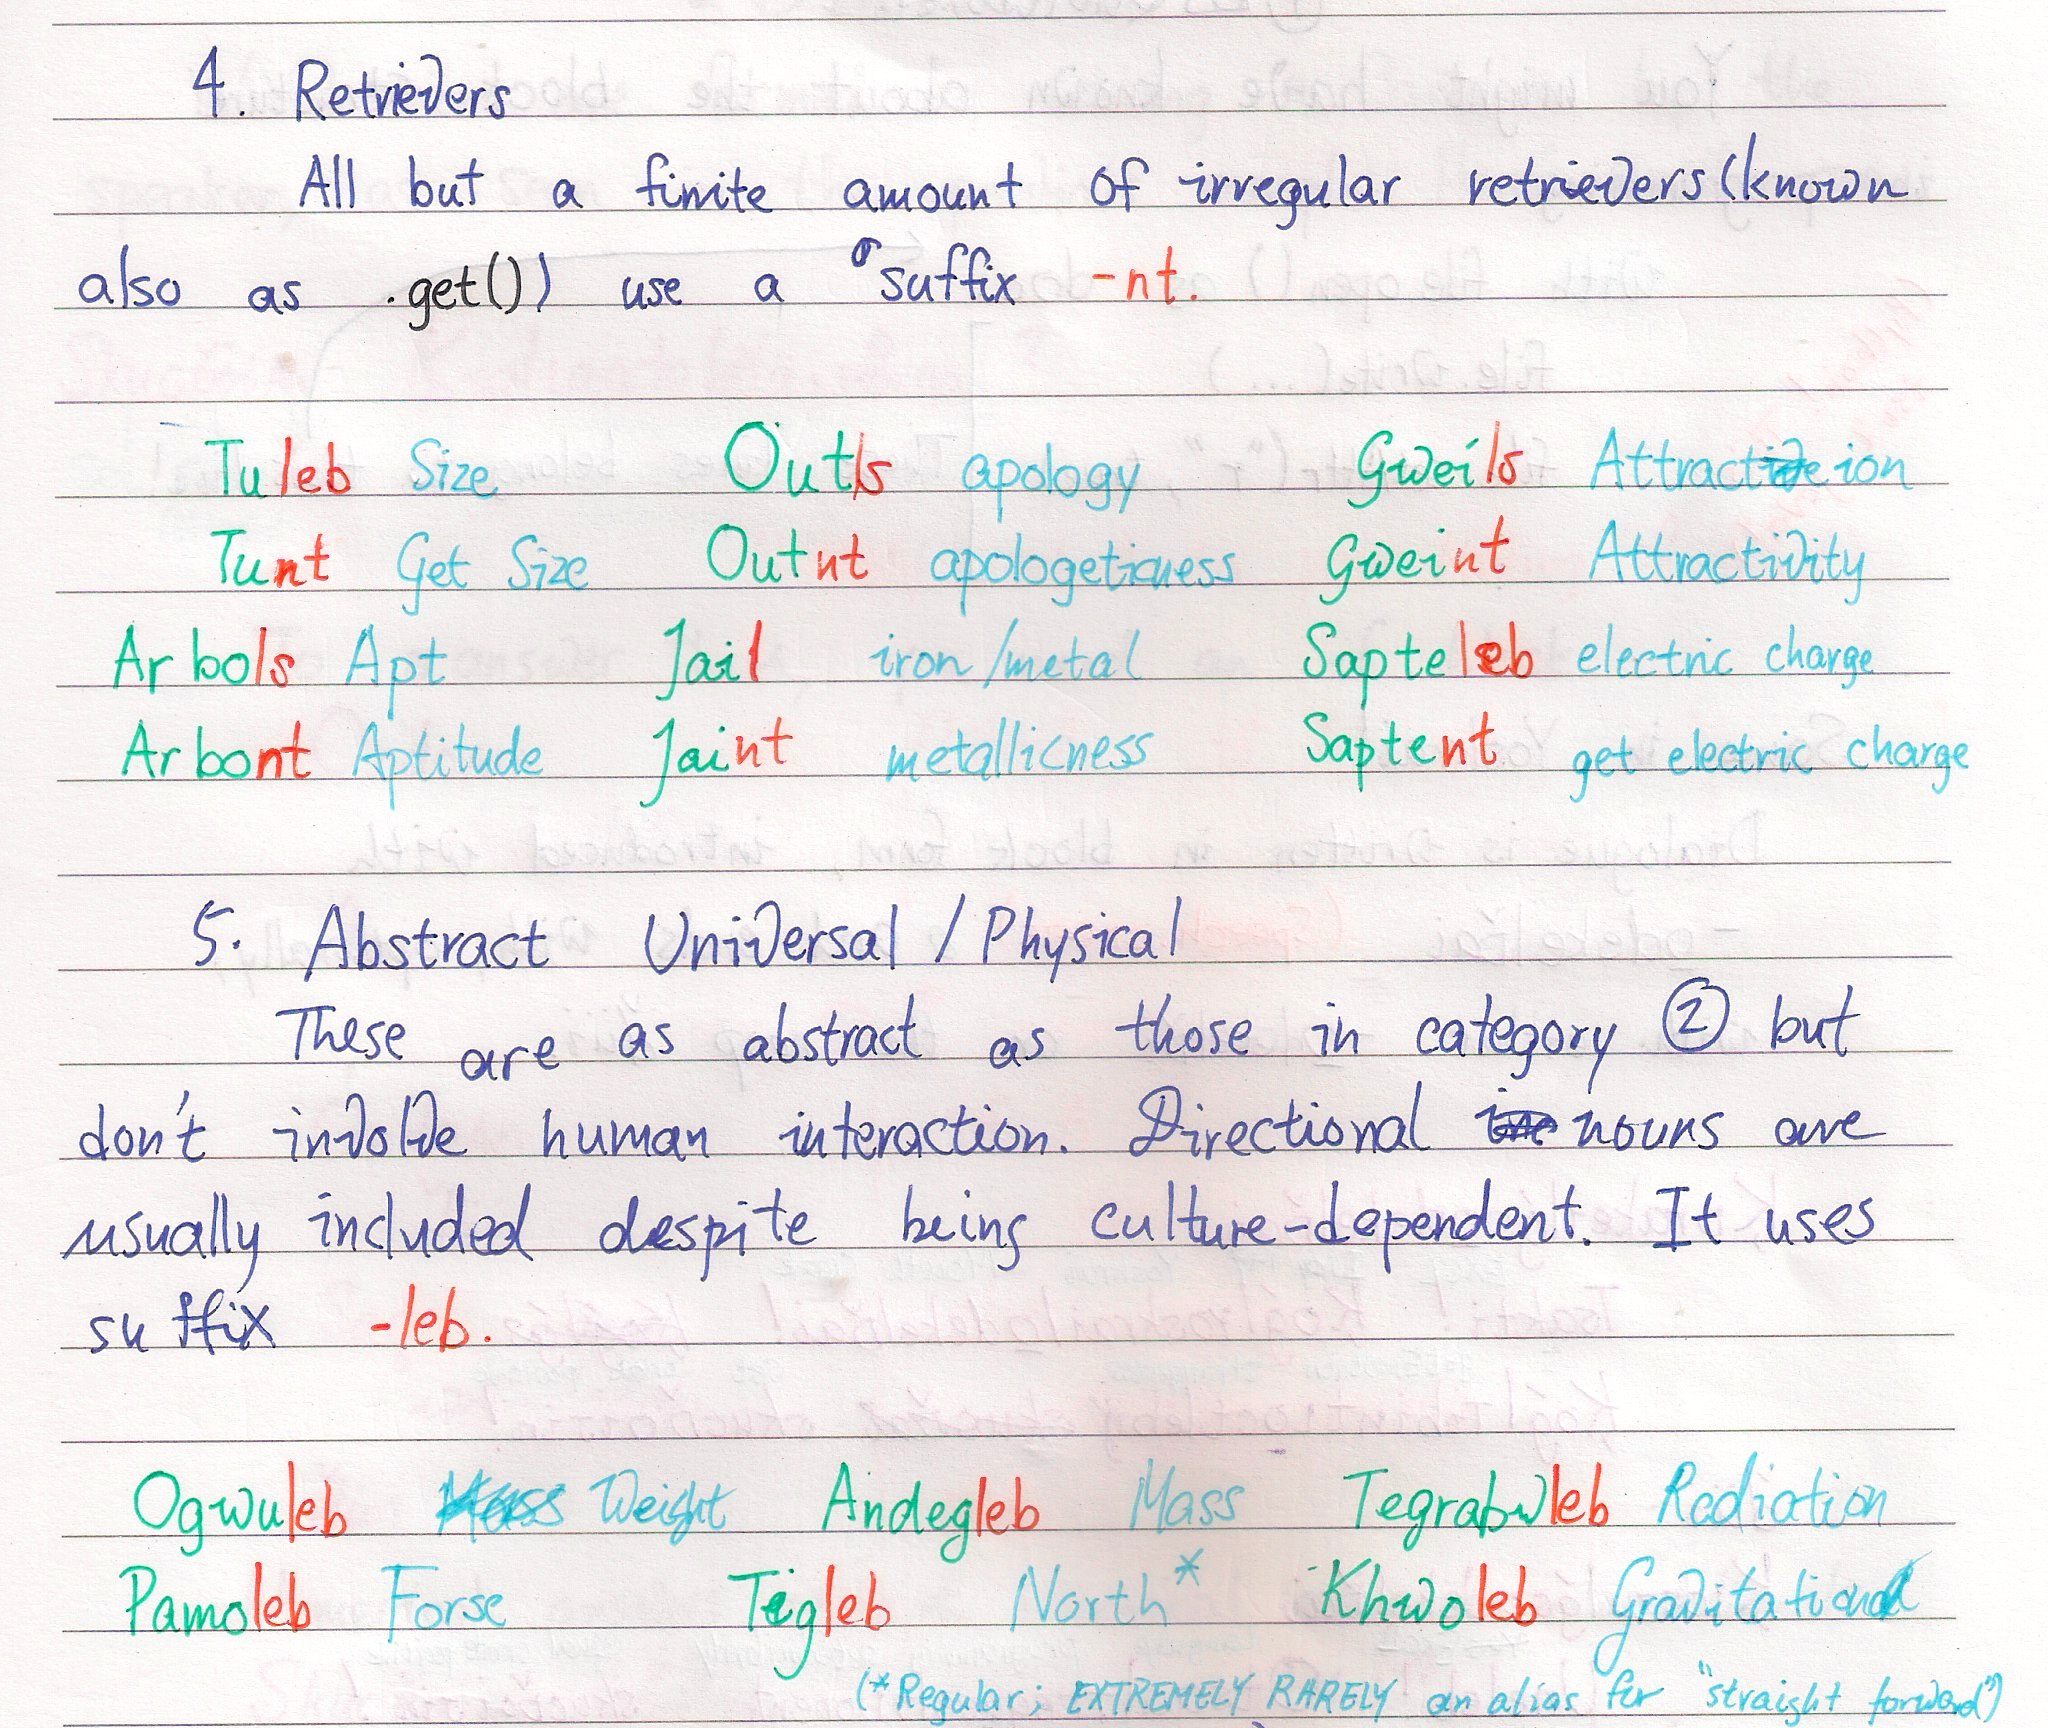 4. Retrievers
All but a finite amount of irregular retrievers (known
also as .get()) use a suffix -nt.
Tuleb Size Outls apology Gweils Attraction
Tunt Get Size Outnt apologeticness Gweint Attractivity
Arbols Apt Jail iron/metal Sapteleb electric charge
Arbont Aptitude Jaint metallicness Saptent get electric charge
5. Abstract Universal / Physical
These are as abstract as those in category ② but
don't involve human interaction. Directional nouns are
usually included despite being culture-dependent. It uses
suffix -leb.
Ogwuleb Weight Andegleb Mass Tegrabwleb Radiation
Pamoleb Forse Tegleb North* Khwoleb Gravitation
(*Regular; EXTREMELY RARELY an alias for "straight forward")